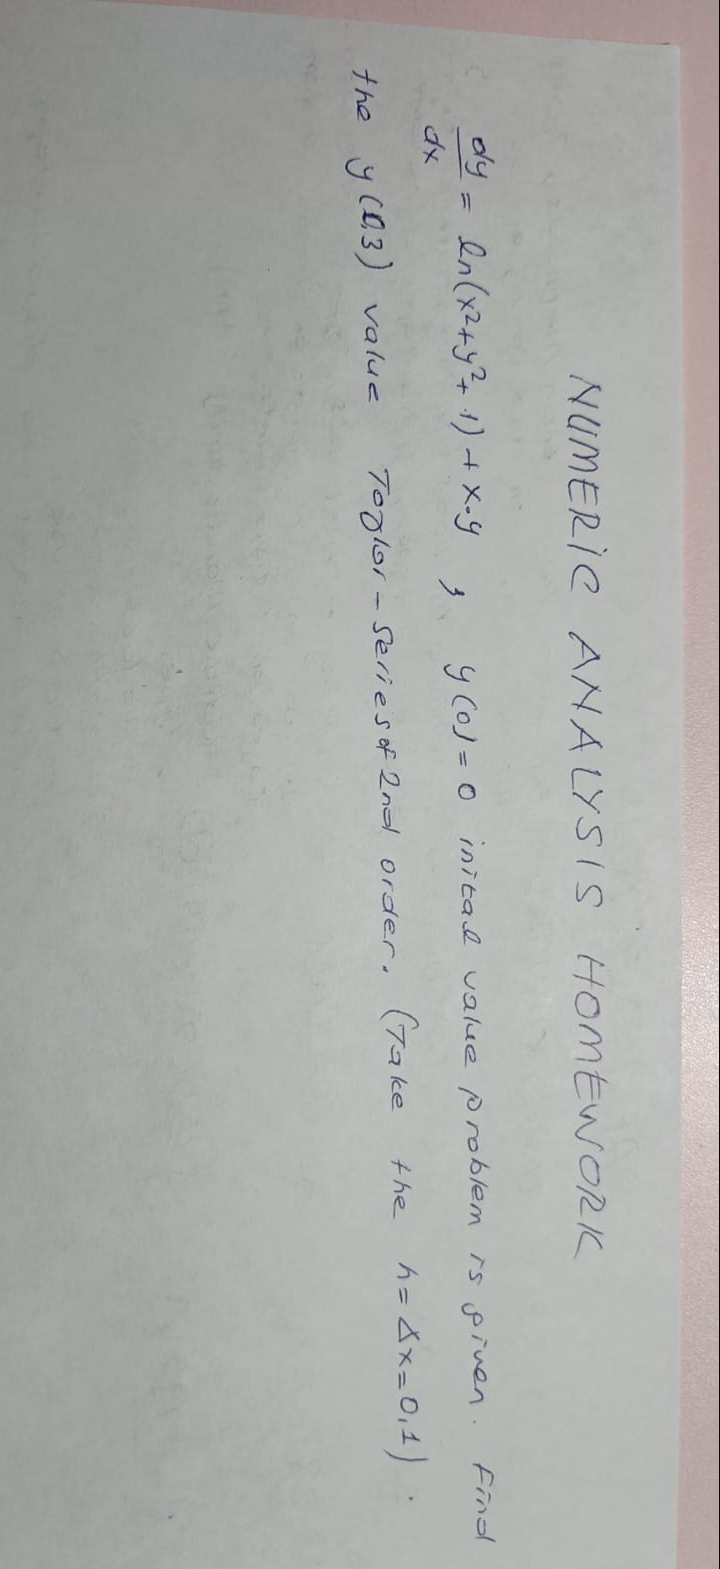 NUMERİC ANALYSIS HOMEWORK
dy/dx = ln(x²+y²+1)+x.y , y(0)=0 inital value problem is given. Find
the y(0,3) value Taylor-Series of 2nd order. (Take the h=Δx=0,1).